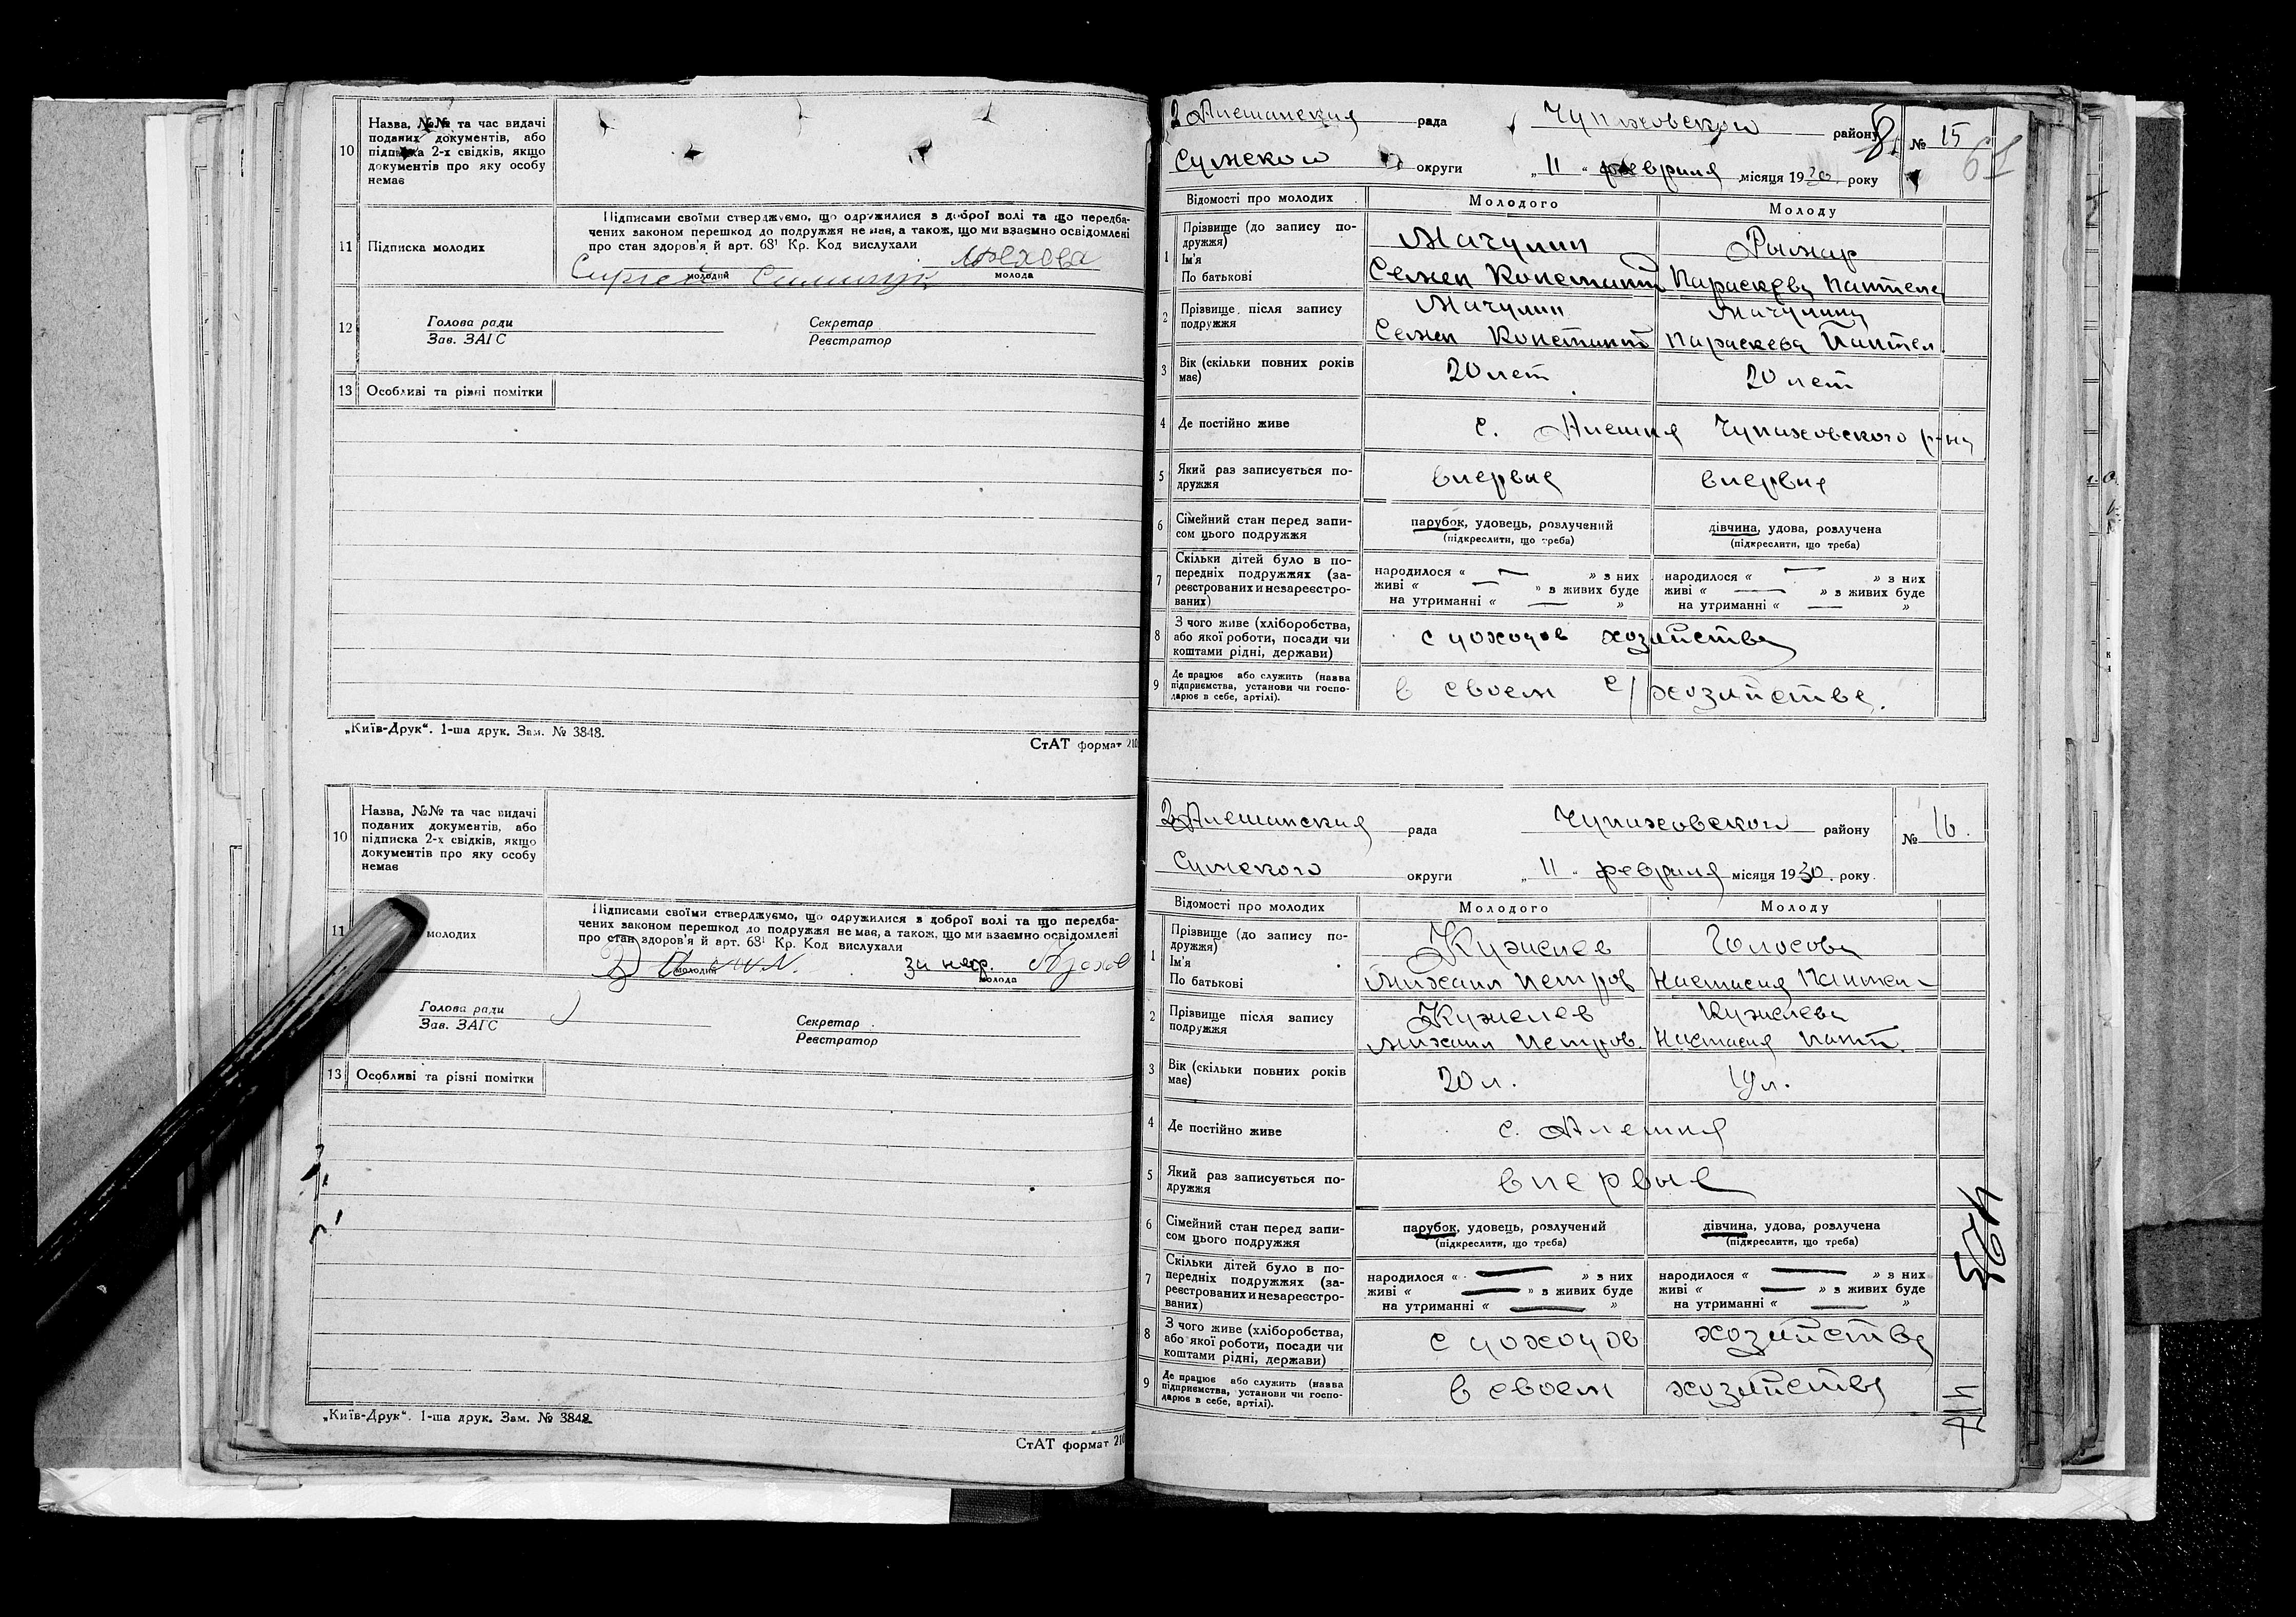 10
Назва, №№ та час видачі
поданих документів, або
підписка 2-х свідків, якщо
документів про яку особу
немає
11
Підписка молодих
Підписами своїми стверджуємо, що одружилися з доброї волі та що передба-
чених законом перешкод до подружжя не має, а також, що ми взаємно освідомлені
про стан здоров'я й арт. 68¹ Кр. Код вислухали
молодий
молода
12
Голова ради
Зав. ЗАГС
Секретар
Реєстратор
13
Особливі та різні помітки
„Київ-Друк“. 1-ша друк. Зам. № 3848.
СтАТ формат 210
10
Назва, №№ та час видачі
поданих документів, або
підписка 2-х свідків, якщо
документів про яку особу
немає
11
молодих
Підписами своїми стверджуємо, що одружилися з доброї волі та що передба-
чених законом перешкод до подружжя не має, а також, що ми взаємно освідомлені
про стан здоров'я й арт. 68¹ Кр. Код вислухали
за негр.
молодий
молода
Голова ради
Зав. ЗАГС
Секретар
Реєстратор
13
Особливі та різні помітки
„Київ-Друк“. 1-ша друк. Зам. № 3848
СтАТ формат 210
Алешанская рада Чупаховского району № 15
Сумского округи „ 11 “ февраля місяця 1930 року
Відомості про молодих Молодого Молоду
1 Прізвище (до запису по-
дружжя)
Ім'я
По батькові
Мачулин
Семен Констант
Рыжар
Параскева Пантеле
2 Прізвище після запису
подружжя
Мачулин
Семен Констант
Мачулина
Параскева Пантел.
3 Вік (скільки повних років
має)
20 лет
20 лет
4 Де постійно живе
с. Алешня Чупаховского р-на
5 Який раз записується по-
дружжя
впервые
впервые
6 Сімейний стан перед запи-
сом цього подружжя
парубок, удовець, розлучений
(підкреслити, що треба)
дівчина, удова, розлучена
(підкреслити, що треба)
7 Скільки дітей було в по-
передніх подружжях (за-
реєстрованих и незареєстро-
ваних)
народилося « — » з них
живі « — » з живих буде
на утриманні « — »
народилося « — » з них
живі « — » з живих буде
на утриманні « — »
8 З чого живе (хліборобства,
або якої роботи, посади чи
коштами рідні, держави)
с доходов хозяйства
9 Де працює або служить (назва
підприємства, установи чи госпо-
дарює в себе, артілі).
в своем с/хозяйстве.
Алешанская рада Чупаховского району № 16.
Сумского округи „ 11 “ февраля місяця 1930. року.
Відомості про молодих Молодого Молоду
1 Прізвище (до запису по-
дружжя)
Ім'я
По батькові
Кужелев
Михаил Петров
Голосова
Настасия Пантел-
2 Прізвище після запису
подружжя
Кужелев
Михаил Петров.
Кужелева
Настасия Пант.
3 Вік (скільки повних років
має)
20 л.
19 л.
4 Де постійно живе
с. Алешня
5 Який раз записується по-
дружжя
впервые
6 Сімейний стан перед запи-
сом цього подружжя
парубок, удовець, розлучений
(підкреслити, що треба)
дівчина, удова, розлучена
(підкреслити, що треба)
7 Скільки дітей було в по-
передніх подружжях (за-
реєстрованих и незареєстро-
ваних)
народилося « — » з них
живі « — » з живих буде
на утриманні « — »
народилося « — » з них
живі « — » з живих буде
на утриманні « — »
8 З чого живе (хліборобства,
або якої роботи, посади чи
коштами рідні, держави)
с доходов хозяйства
9 Де працює або служить (назва
підприємства, установи чи госпо-
дарює в себе, артілі).
в своем хозяйстве